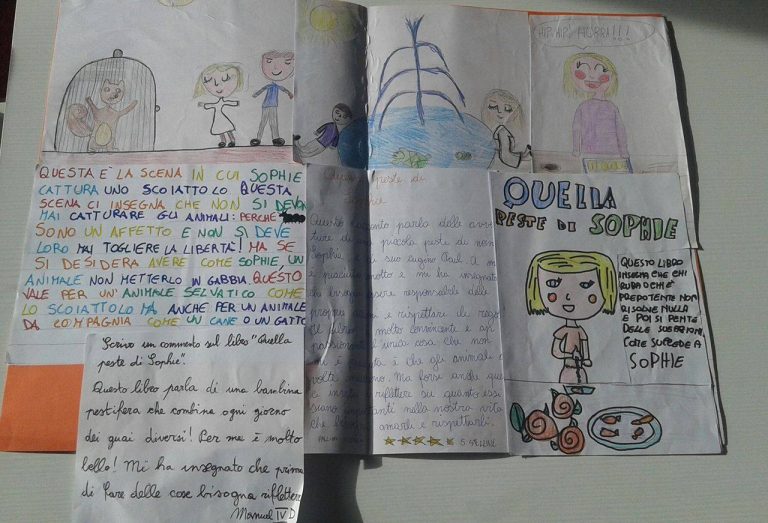 HIP HIP HURRA!!!
QUESTA È LA SCENA IN CUI SOPHIE
CATTURA UNO SCOIATTOLO QUESTA
SCENA CI INSEGNA CHE NON SI DEVON
MAI CATTURARE GLI ANIMALI: PERCHÈ
SONO UN AFFETTO E NON SI DEVE
LORO MAI TOGLIERE LA LIBERTA'! MA SE
SI DESIDERA AVERE COME SOPHIE, UN
ANIMALE NON METTERLO IN GABBIA. QUESTO
VALE PER UN'ANIMALE SELVATICO COME
LO SCOIATTOLO MA ANCHE PER UN'ANIMALE
DA COMPAGNIA COME UN CANE O UN GATTO
Scrivo un commento sul libro "Quella
peste di Sophie".
Questo libro parla di una bambina
pestifera che combina ogni giorno
dei guai diversi! Per me è molto
bello! Mi ha insegnato che prima
di fare delle cose bisogna riflettere
Manuel IV D
peste di
Sophie
Questo racconto parla delle avv
ture di una piccola peste di nom
Sophie, e di suo cugino Paul. A me
è piaciuto molto e mi ha insegnato
che bisogna essere responsabili delle
proprie azioni e rispettare le rego
molto convincente e ap
passionante l'unica cosa che non
è che gli animali a
volte muoiono. Ma forse anche que
riflettere su quanto essi
siano importanti nella nostra vita
amarli e rispettarli.
QUELLA
PESTE DI SOPHIE
QUESTO LIBRO
INSEGNA CHE CHI
RUBA O CHI È
PREPOTENTE NON
RISOLVE NULLA
E POI SI PENTE
DELLE SUE AZIONI
COME SUCCEDE A
SOPHIE